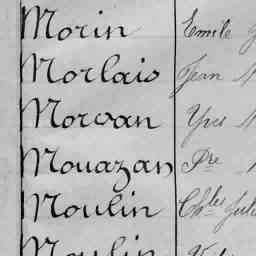 Morin Emile
Morlais Jean
Morvan Yves
Mouazan Pre
Moulin Chles Jules
Moulin